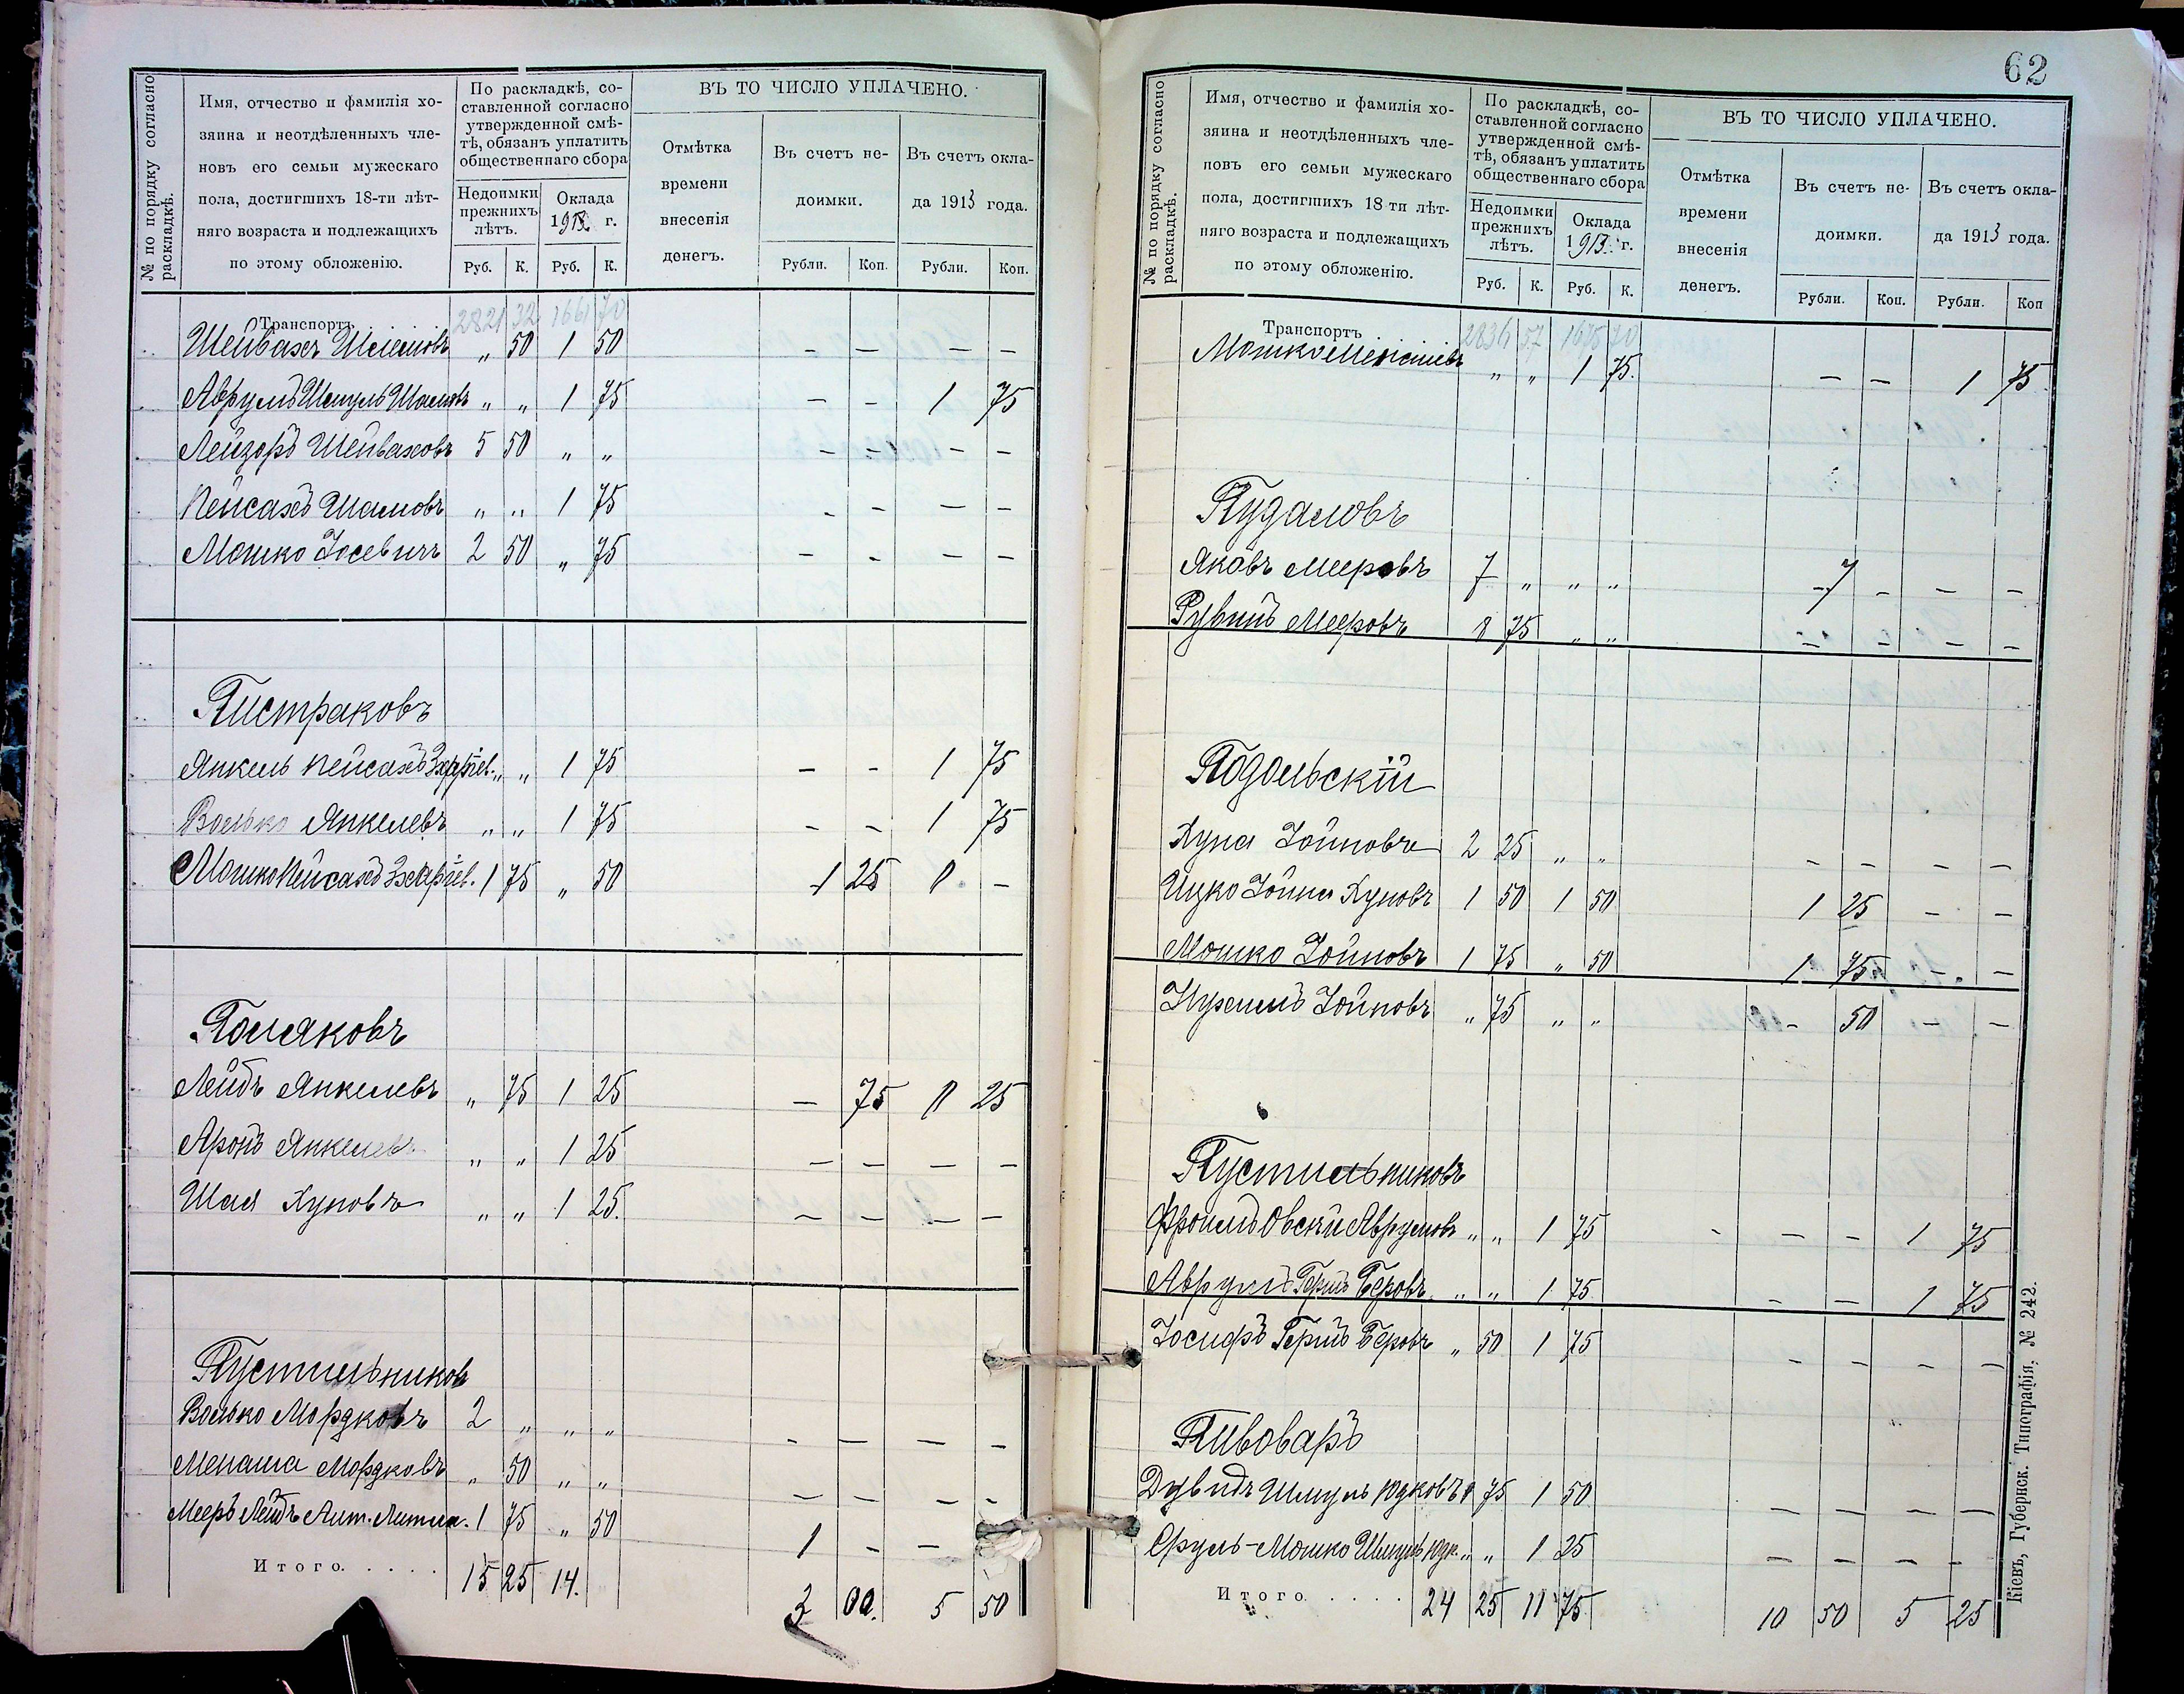 № по порядку согласно раскладкѣ.
Имя, отчество и фамилія хо-
зяина и неотдѣленныхъ чле-
новъ его семьи мужескаго
пола, достигшихъ 18-ти лѣт-
няго возраста и подлежащихъ
по этому обложенію.
По раскладкѣ, со-
ставленной согласно
утвержденной смѣ-
тѣ, обязанъ уплатить
общественнаго сбора
Недоимки прежнихъ лѣтъ.
Оклада 1913 г.
Руб. К. Руб. К.
ВЪ ТО ЧИСЛО УПЛАЧЕНО.
Отмѣтка времени внесенія денегъ.
Въ счетъ не-доимки.
Въ счетъ окла-да 1913 года.
Рубли. Коп. Рубли. Коп.
Транспортъ 2821 32 1661 70
Шейвахъ „ 50 1 50 — — — —
Аврумъ Шмуль „ „ 1 75 — — 1 75
Лейзоръ Шейваховъ 5 50 „ „ — — — —
Пейсахъ Шамовъ „ „ 1 75 — — — —
Мошко Іосевичъ 2 50 „ 75 — — — —
Пистраковъ
Янкель Пейсахъ „ „ 1 75 — — 1 75
Волько Янкелевъ „ „ 1 75 — — 1 75
Мошко Пейсахъ 1 75 „ 50 1 25 0 —
Поляковъ
Лейбъ Янкелевъ „ 75 1 25 — 75 0 25
Аронъ Янкелевъ „ „ 1 25 — — — —
Шая Хуновъ „ „ 1 25. — — — —
Пустильников
Волько Мордковъ 2 „ „ „ — — — —
Менаша Мордковъ „ 50 „ „ — — — —
Мееръ Лейбъ 1 75 „ 50 1 — —
Итого. . . . . 15 25 14. 3 00. 5 50
62
№ по порядку согласно раскладкѣ.
Имя, отчество и фамилія хо-
зяина и неотдѣленныхъ чле-
новъ его семьи мужескаго
пола, достигшихъ 18 ти лѣт-
няго возраста и подлежащихъ
по этому обложенію.
По раскладкѣ, со-
ставленной согласно
утвержденной смѣ-
тѣ, обязанъ уплатить
общественнаго сбора
Недоимки прежнихъ лѣтъ.
Оклада 1913 г.
Руб. К. Руб. К.
ВЪ ТО ЧИСЛО УПЛАЧЕНО.
Отмѣтка времени внесенія денегъ.
Въ счетъ не-доимки.
Въ счетъ окла-да 1913 года.
Рубли. Коп. Рубли. Коп
Транспортъ 2836 57 1675 70
Мошко „ „ 1 75. — — 1 75
Пудаловъ
Яковъ Мееровъ 7 „ „ „ 7 — — —
Рувинъ Мееровъ 8 75 „ „ — — — —
Подольскій
Хуна Іойновъ 2 25 „ „ — — — —
Ицко Іойна Хуновъ 1 50 1 50 1 25 — —
Мошко Іойновъ 1 75 „ 50 1 75 — —
Нухимъ Іойновъ „ 75 „ „ — 50 — —
Пустильниковъ
Фроимъ Овсей Аврумовъ „ „ 1 75 — — 1 75
Аврумъ Герш Беровъ „ „ 1 75 — — 1 75
Іосифъ Гершъ Беровъ „ 50 1 75 — — — —
Пивоваръ
Дувидъ Шмуль Юдковъ 1 75 1 50 — — — —
Сруль-Мошко Шмуль Юдк. „ „ 1 25 — — — —
Итого. . . . . 24 25 11 75 10 50 5 25
Кіевъ, Губернск. Типографія, № 242.